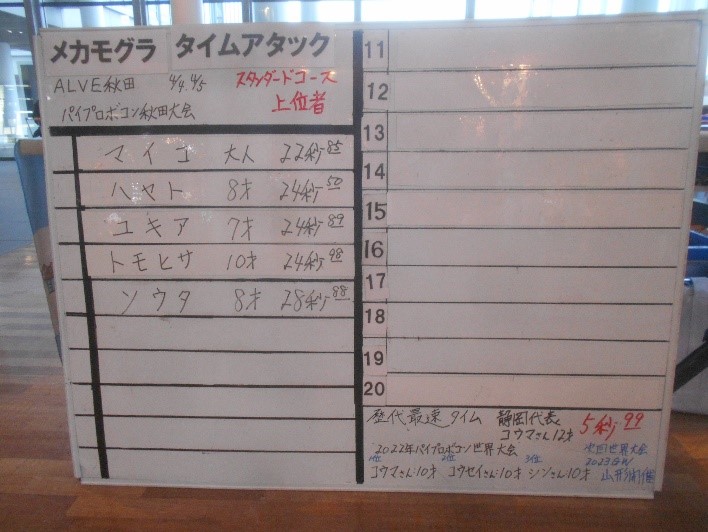 メカモグラ タイムアタック
ALVE秋田 4/4.4/5 スタンダードコース
パイプロボコン秋田大会 上位者
マイコ 大人 22秒85
ハヤト 8才 24秒50
ユキア 7才 24秒89
トモヒサ 10才 24秒98
ソウタ 8才 28秒88
11
12
13
14
15
16
17
18
19
20
歴代最速タイム 静岡代表 5秒99
コウマさん12才
2022年パイプロボコン世界大会 次回世界大会
1位 2位 3位 2023GW
コウマさん:10才 コウセイさん:10才 シンさん:10才 山形開催